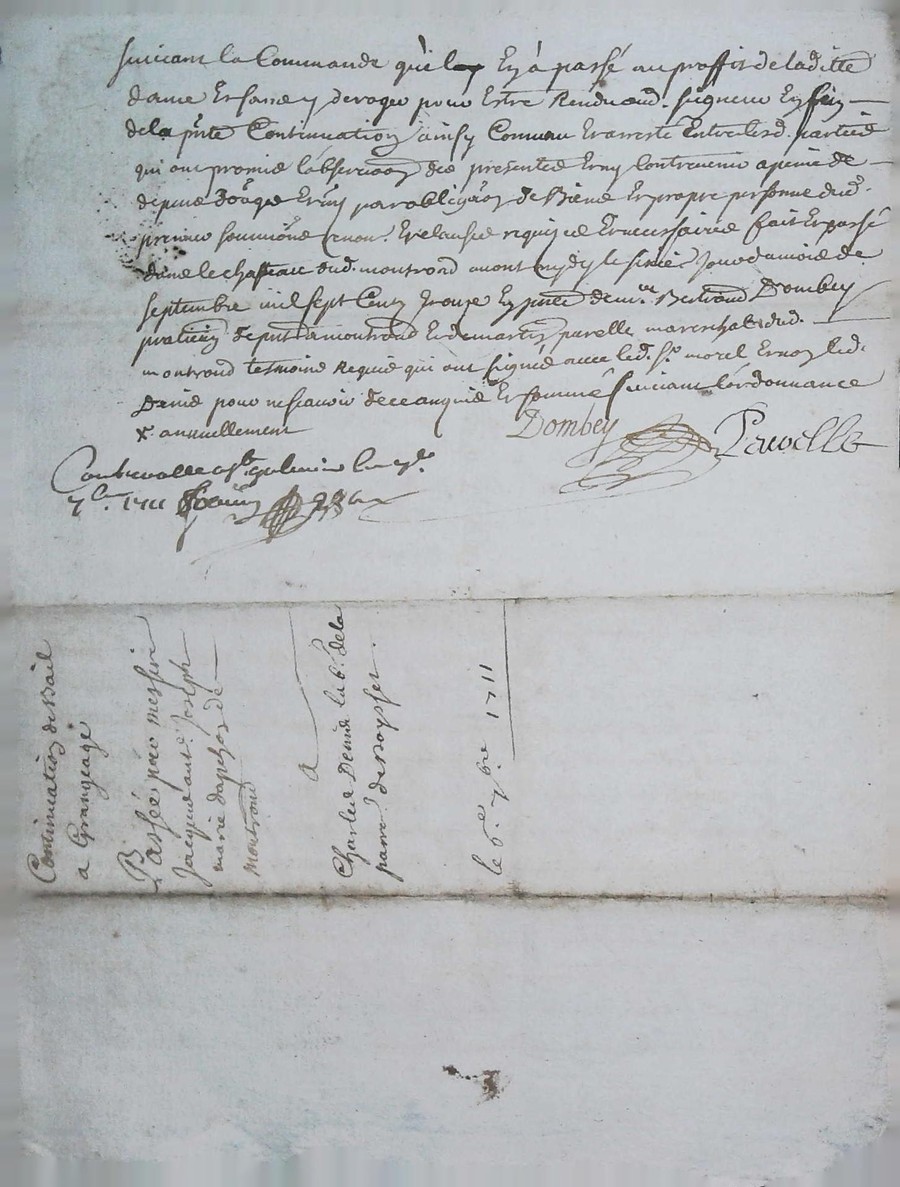 suivant la Commande qu'il Ey à passé au proffit de laditte
dame Er sans y deroger pour Estre Rendu aud. seigneur Ey fin
de la pnte Continuation ainsy Convenu Er arresté Entre lesd. parties
qui ont promis l'observaon des presentes Er ny Contrevenir a peine de
depuis par obligaon de Biens Er propre personne dud.
preneur soumiône renon. Er clauses requises Er necessaires fait Er passé
dans le chasteau dud. montrond avant mydy le sixie Jour du mois de
septembre mil sept Centz Jnze Ey pnce de me. Bertrand Dombey
praticien de montrond Er de martin parelle mareschal dud.
montrond tesmoins Requis qui ont signés avec led. sr. morel Er non led.
Denis pour ne scavoir de ce enquis Er sommé suivant l'ordonnance
x. annuellement
Dombey Parelle
Contrerolle a st. galmier le
7bre. 1711
Continuation de Bail
a Grangeage
Passée par messire
Jacque ant. Joseph
marie dapchon de
montrond
a
Charles Denis lab. de la
parr. de
le 6e. 7bre 1711